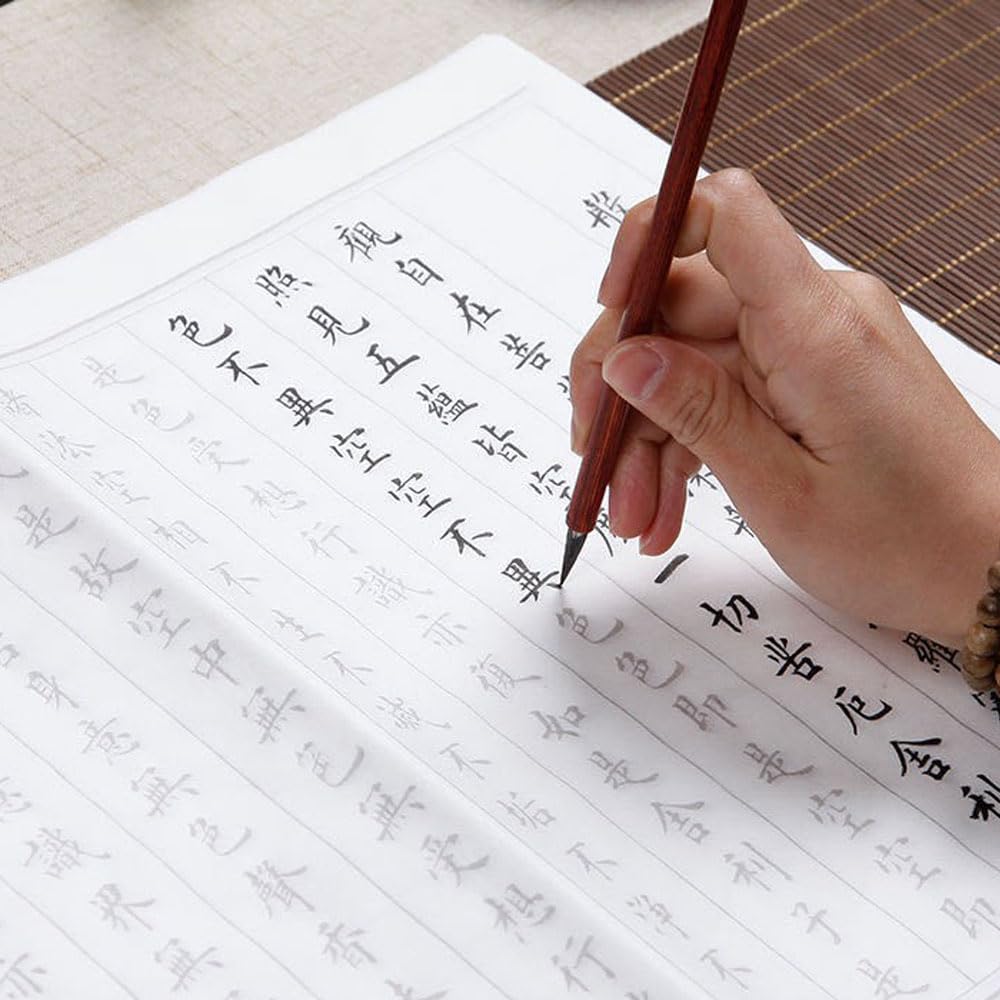 般
觀自在菩羅
照見五蘊皆空一切苦厄舍利
色不異空空不異色色即是空空即
是色受想行識亦復如是舍利子是
諸法空相不生不滅不垢不淨不
是故空中無色無受想行
身意無色聲香
識界無
亦